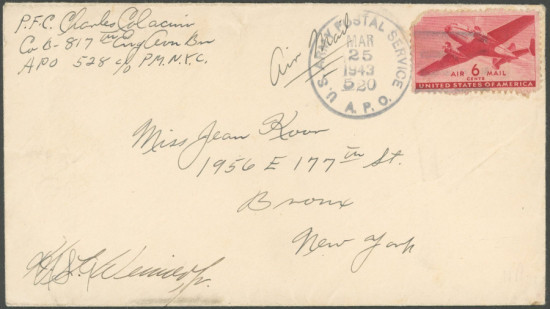 P.F.C. Charles Colacino
Co B - 817th Eng Avn Bn
APO 528 c/o P.M. N.Y.C.
Air Mail
U.S. ARMY POSTAL SERVICE
MAR
25
1943
520
A.P.O.
AIR 6 MAIL
CENTS
UNITED STATES OF AMERICA
Miss Jean
1956 E 177th St.
Bronx
New York